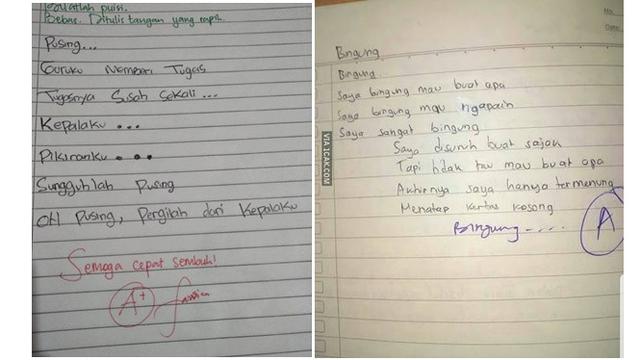 Buatlah puisi.
Bebas. Ditulis tangan yang rapi.
Pusing...
Guruku Memberi Tugas
Tugasnya Susah Sekali ...
Kepalaku ...
Pikiranku ...
Sungguhlah Pusing
Oh Pusing, Pergilah dari Kepalaku
Semoga cepat sembuh!
A+
Bingung
Bingung
Saya bingung mau buat apa
Saya bingung mau ngapain
Saya sangat bingung
Saya disuruh buat sajak
Tapi tidak tau mau buat apa
Akhirnya saya hanya termenung
Menatap kertas kosong
Bingung....
A
VIA 1CAK.COM
No.
Date